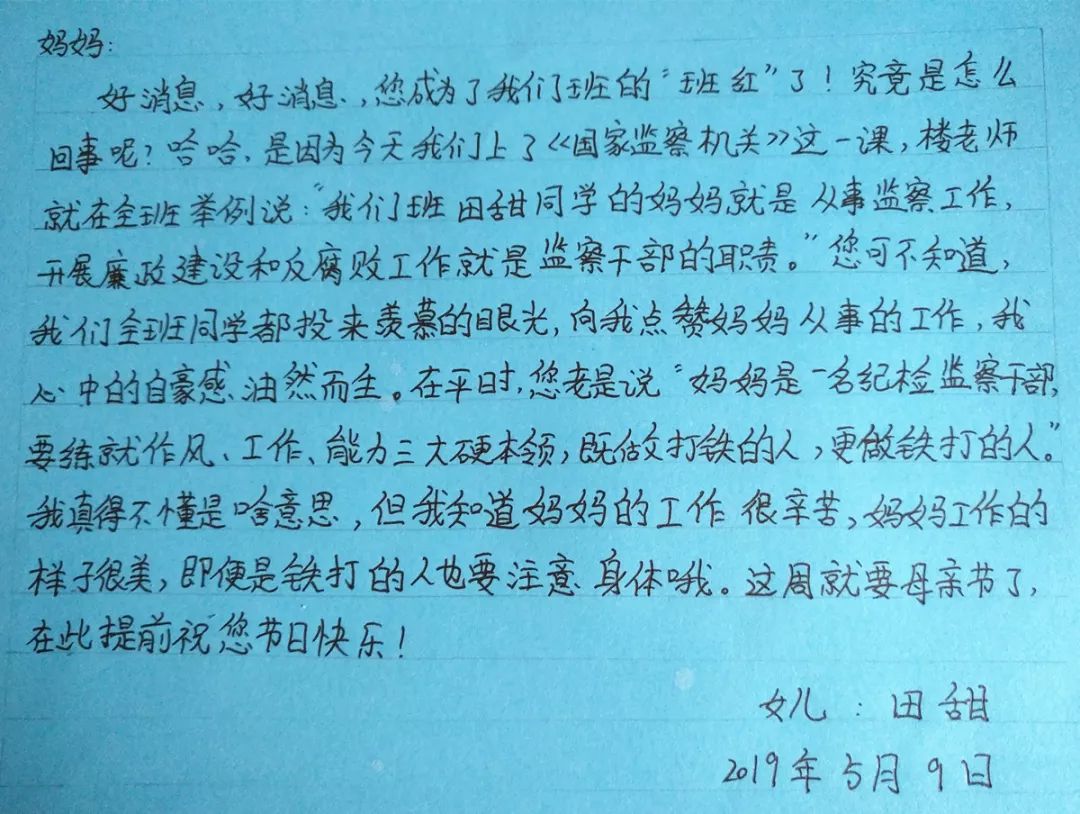 妈妈:
好消息,好消息,您成为了我们班的“班红”了!究竟是怎么
回事呢?哈哈,是因为今天我们上了《国家监察机关》这一课,楼老师
就在全班举例说:“我们班田甜同学的妈妈就是从事监察工作,
开展廉政建设和反腐败工作就是监察干部的职责。”您可不知道,
我们全班同学都投来羡慕的眼光,向我点赞妈妈从事的工作,我
心中的自豪感油然而生。在平时,您老是说“妈妈是一名纪检监察干部,
要练就作风、工作、能力三大硬本领,既做打铁的人,更做铁打的人。”
我真得不懂是啥意思,但我知道妈妈的工作很辛苦,妈妈工作的
样子很美,即便是铁打的人也要注意身体哦。这周就要母亲节了,
在此提前祝您节日快乐!
女儿:田甜
2019年5月9日